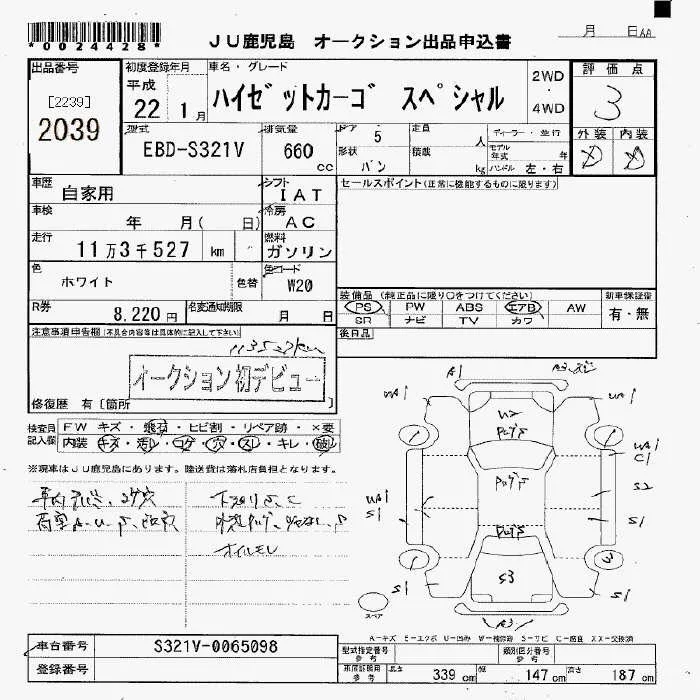 *0024428*
JU鹿児島 オークション出品申込書
月 日
出品番号
[2239]
2039
初度登録年月
平成
22 1月
車名・グレード
ハイゼットカーゴ スペシャル
2WD
・
4WD
評価点
3
型式
EBD-S321V
排気量
660
cc
ドア 5
形状 バン
定員 人
積載 kg
ディーラー・並行
モデル年式 年
ハンドル 左・右
外装 内装
D D
車歴
自家用
シフト
IAT
セールスポイント(正常に機能するものに限ります)
車検
年 月( 日)
冷房
AC
走行
11万3千527 km
燃料
ガソリン
色
ホワイト
色替
色コード
W20
R券
8,220円
名変通知期限
月 日
装備品(純正品に限り○をつけてください)
PS PW ABS エアB AW
SR ナビ TV カワ
新車保証書
有・無
後日品
注意事項申告欄(不具合内容等は具体的に記入して下さい)
113527km
オークション初デビュー
修復歴 有[箇所 ]
検査員
記入欄
FW キズ・飛石・ヒビ割・リペア跡・×要
内装 キズ・汚レ・コゲ・穴・スレ・キレ・破レ
※現車はJU鹿児島にあります。陸送費は落札店負担となります。
オイルモレ
A1
UA1
U2
UA1
C1
S2
S1
UA1
S1
S3
S1
S1
1
1
3
スペア
A-キズ E-エクボ U-凹み W-補修跡 S-サビ C-腐食 XX-交換済
車台番号
S321V-0065098
登録番号
型式指定番号
参考
類別区分番号
参考
車庫証明用
参考
長さ 339 cm 幅 147 cm 高さ 187 cm